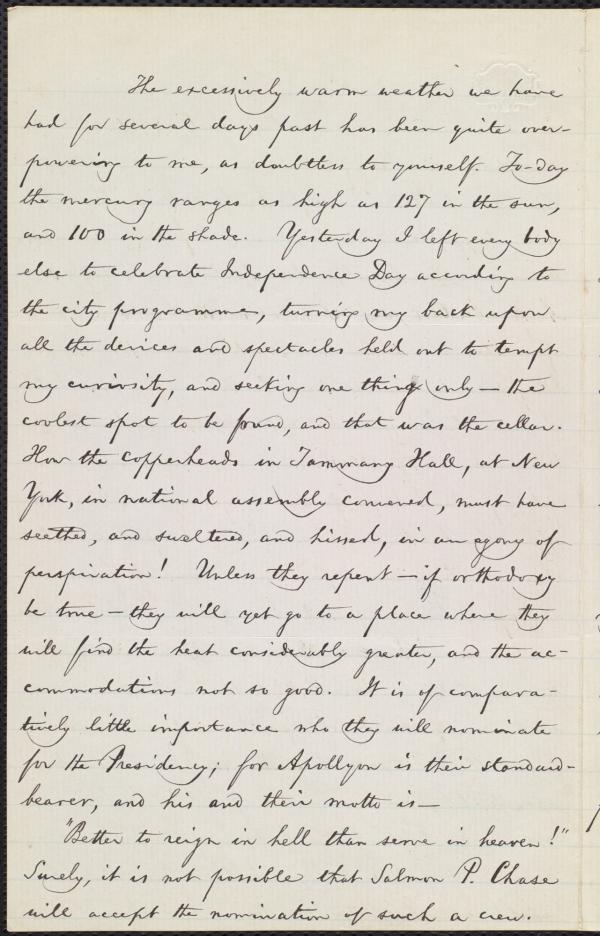 The excessively warm weather we have
had for several days past has been quite over-
powering to me, as doubtless to yourself. To-day
the mercury ranges as high as 127 in the sun,
and 100 in the shade. Yesterday I left every body
else to celebrate Independence Day according to
the city programme, turning my back upon
all the devices and spectacles held out to tempt
my curiosity, and seeking one thing only — the
coolest spot to be found, and that was the cellar.
How the Copperheads in Tammany Hall, at New
York, in national assembly convened, must have
seethed, and sweltered, and hissed, in an agony of
perspiration! Unless they repent — if orthodoxy
be true — they will yet go to a place where they
will find the heat considerably greater, and the ac-
commodations not so good. It is of compara-
tively little importance who they will nominate
for the Presidency; for Apollyon is their standard-
bearer, and his and their motto is —
"Better to reign in hell than serve in heaven!"
Surely, it is not possible that Salmon P. Chase
will accept the nomination of such a crew.